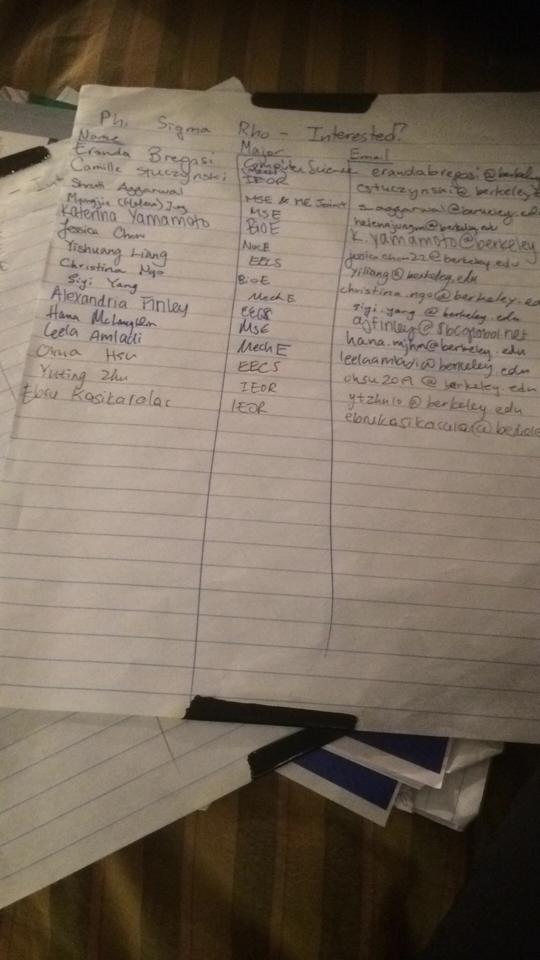 Phi Sigma Rho - Interested?
Name Major Email
Eranda Bregasi Computer Science erandabregasi@berkeley
Camille Stuczynski IEOR cstuczynski@berkeley.e
Shruti Aggarwal MSE & ME Joint s.aggarwal@berkeley.edu
(Helena) MSE helenajungm@berkeley.edu
Katerina Yamamoto BioE k.yamamoto@berkeley
Jessica Chow NucE jessica.chow22@berkeley.edu
Yishuang Liang EECS yiliang@berkeley.edu
Christina Ngo BioE christina.ngo@berkeley.ed
Siyi Yang MechE siyi.yang@berkeley.edu
Alexandria Finley EECS ajfinley@sbcglobal.net
Hana McLaughlin MSE hana.mjhm@berkeley.edu
Leela Amladi MechE leelaamladi@berkeley.edu
Hsu EECS ohsu2019@berkeley.edu
Yuting Zhu IEOR ytzhu10@berkeley.edu
Ebru Kasikaralar IEOR